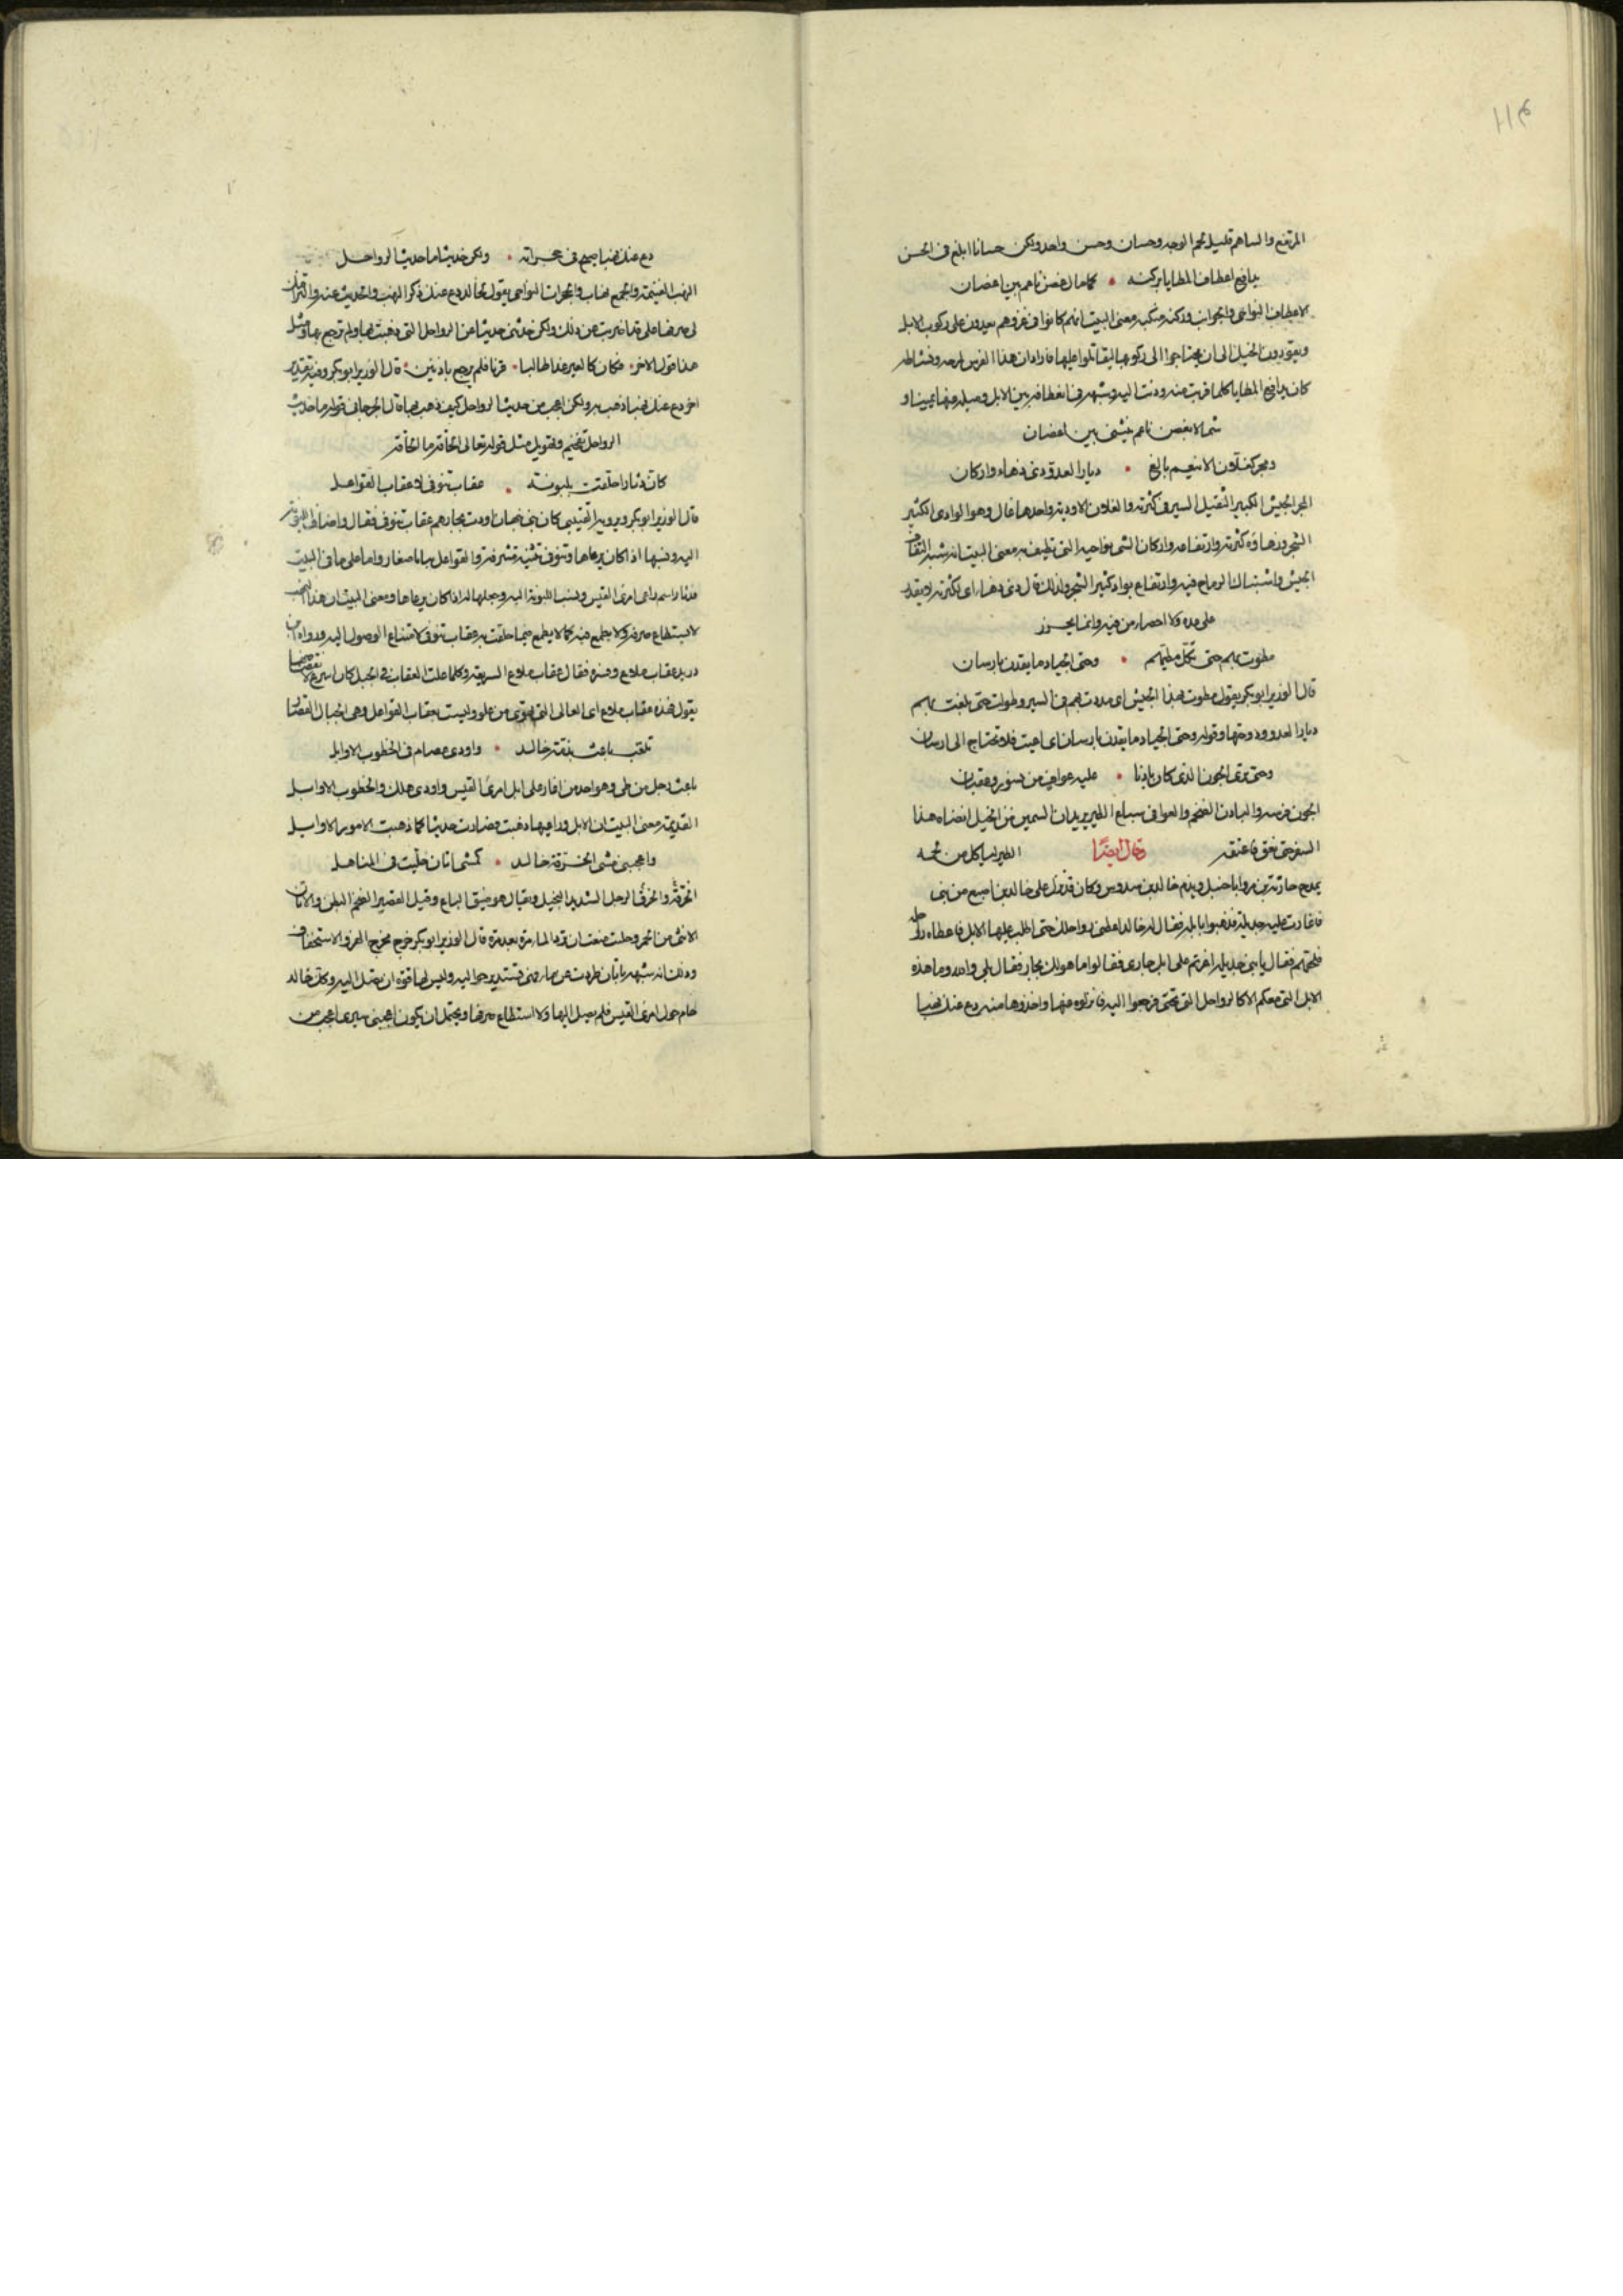 ١١٤
المرتفع والساهم قليل لحم الوجه وحسان وحسن واحد ولكن حسانا ابلغ فى الحسن
يدافع اعطاف المطايا بركنه • كما مال غصن ناعم بين اغصان
الاعطاف النواحى والجوانب وركنه منكبه ومعنى البيت انهم كانوا فى غزوهم يعدون على ركوب الابل
ويقودون الخيل الى ان يحتاجوا الى ركوبها ليقاتلوا عليها فاراد ان هذا الفرس لمرحه ونشاطه
كان يدافع المطايا كلما قربت منه ودنت اليه وشبهه فى انعطافه بين الابل وميله منها يمينا و
شمالا بغصن ناعم ينثنى بين اغصان
ومجر كغلان الانيعم بالغ • ديار العدو ذى زهاء واركان
المجر الجيش الكبير الثقيل السير فى كثرته والغلان الاودية واحدها غال وهو الوادى الكثير
الشجر وزهاؤه كثرته وارتفاعه واركان الشى نواحيه التى تطيف به ومعنى البيت انه شبه التفاف
الجيش واشتباك الرماح فيه وارتفاع بواد كثير الشجر ولذلك قال ذى زهاء اى لكثرته لا يقدر
على عده ولا احصاء من فيه وانما يحزر
مطوت بهم حتى تكل مطيهم • وحتى الجياد ما يقدن بارسان
قال الوزير ابو بكر يقول مطوت بهذا الجيش اى مددت بهم فى السير وطولت حتى بلغت بهم
ديار العدو ودوختها وقوله وحتى الجياد ما يقدن بارسان اى اعيت فلا تحتاج الى ارسان
وحتى ترى الجون الذى كان بادنا • عليه عواف من نسور وعقبان
الجون فرسه والبادن الضخم والعوافى سباع الطير يريد ان السمين من الخيل انضاه هذا
السفر حتى نفق فاعتفته الطير لتاكل من لحمه
وقال ايضًا
يمدح جارية بن مر ابا حنبل ويذم خالد بن سدوس وكان قد نزل على خالد بن اصمع من بنى
فاغارت عليه جديلة فذهبوا بابله فقال له خالد اعطنى رواحلك حتى اطلب عليها الابل فاعطاه رواحله
فلحقهم فقال يا بنى جديلة اغرتم على ابل جارى فقالوا ما هو لك بجار فقال بلى والله وما هذه
الابل التى معكم الا كالرواحل التى تحتى فرجعوا اليه فانزلوه عنها واخذوها منه دع عنك نهبا
دع عنك نهبا صيح فى حجراته • ولكن حديثا ما حديث الرواحل
النهب الغنيمة والجمع نهاب والحجرات النواحى يقول لخالد دع عنك ذكر النهب والحديث عنه
هذا قول الاخر • فكان كالعير غدا طالبا • قرنا فلم يرجع باذنين • قال الوزير ابو بكر وفيه تقدير
اخر دع عنك نهبا ذهب به ولكن اعجب من حديث الرواحل كيف ذهب بها قال الجرجانى قوله ما حديث
الرواحل تفخيم وتهويل مثل قوله تعالى الحاقة ما الحاقة
كان دثارا حلقت بلبونه • عقاب تنوفى لا عقاب القواعل
اليه ونسبها اذا كان يرعاها وتنوفى ثنية مشرفة والقواعل جبال صغار واما على ما فى البيت
فدثار اسم راعى امرئ القيس ونسب اللبونة اليه وجعلها له اذا كان يرعاها ومعنى البيت ان هذا النهب
لا يستطاع صرفه ولا يطمع فيه كما لا يطمع فيما حلقت به عقاب تنوفى لامتناع الوصول اليه ورواه ابن
دريد عقاب ملاع وفسره فقال عقاب ملاع السريعة وكلما علت العقاب فى الجبل كان اسرع لانقضاضها
يقول فهذه عقاب ملاع اى العالى التى تهوى من علو وليست بعقاب القواعل وهى الجبال القصار
تلعب باعث بذمة خالد • واودى عصام فى الخطوب الاوائل
باعث رجل من طى وهو احد من اغار على ابل امرئ القيس واودى هلك والخطوب الاوايل
القديمة ومعنى البيت ان الابل وراعيها ذهبت فصارت حديثا كما ذهبت الامور الاوايل
واعجبنى مشى الحزقة خالد • كمشى اتان حلئت فى المناهل
الحزقة والحزق الرجل الشديد البخيل ويقال هو ضيق الباع وقيل القصير الضخم البطن والاتان
الانثى من الحمر وحلئت منعت ان ترد الماء مرة بعد مرة قال الوزير ابو بكر خرج مخرج الهزو والاستخفاف
وذلك انه شبهه باتان طردت عن ماء فهى تستدير حواليه وليس لها قوة ان تصل اليه وكان خالد
حام حول امرئ القيس فلم يصل اليها ولا استطاع صرفها ويحتمل ان يكون اعجبنى سيرى اعجب من